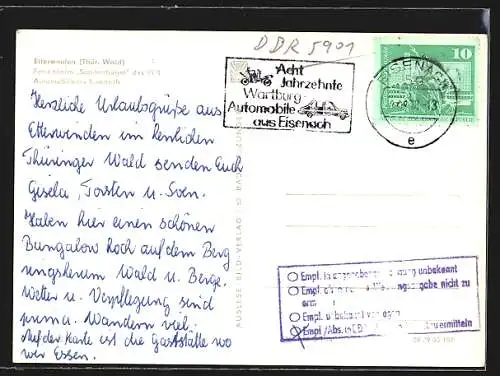 DDR 5901
Etterwinden (Thür. Wald)
Ferienheim des VEB
Automobilwerk Eisenach
Acht
Jahrzehnte
Wartburg
Automobile
aus Eisenach
EISENACH
e
10
Herzliche Urlaubsgrüße aus
Etterwinden im herrlichen
Thüringer Wald senden Euch
Gisela, Torsten u. Sven.
Haben hier einen schönen
Bungalow hoch auf dem Berg
ringsherum Wald u. Berge.
Wetter u. Verpflegung sind
prima. Wandern viel.
Auf der Karte ist die Gaststätte wo
wir Essen.
AUSLESE-BILD-VERLAG
Empf. in angegebener unbekannt
Empf. nicht zu
Empf. unbekannt verzogen
Empf./Abs. in